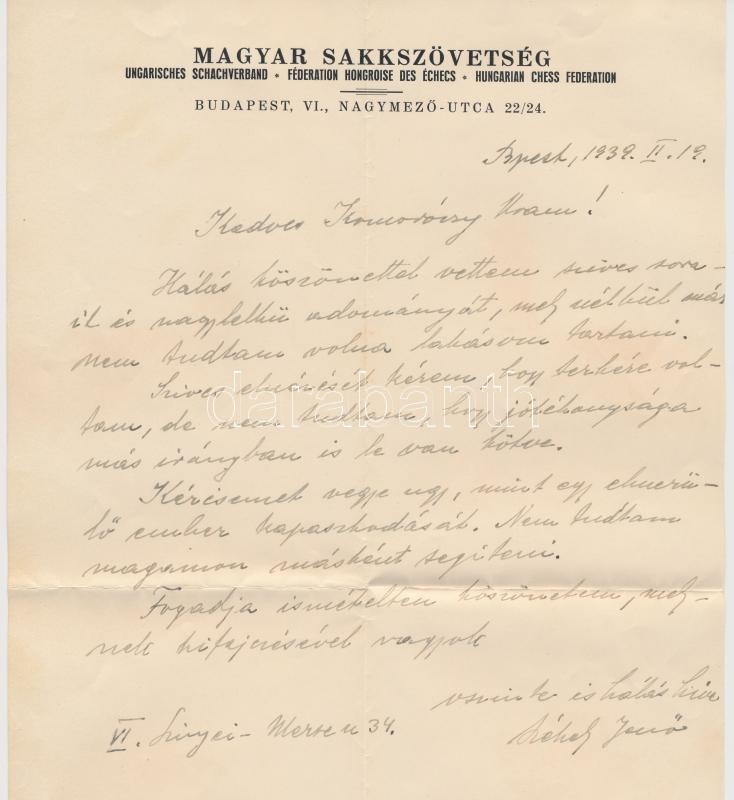 MAGYAR SAKKSZÖVETSÉG
UNGARISCHES SCHACHVERBAND • FÉDERATION HONGROISE DES ÉCHECS • HUNGARIAN CHESS FEDERATION
BUDAPEST, VI., NAGYMEZŐ-UTCA 22/24.
Bpest, 1939. II. 19.
Kedves Komoróczy Uram!
Hálás köszönettel vettem szives sora-
it és nagylelkű adományát, mely nélkül már
nem tudtam volna lakásom tartani.
Szives elnézését kérem, hogy terhére vol-
tam, de nem tudtam, hogy jótékonysága
más irányban is le van kötve.
Kérésemet vegye ugy, mint egy elmerü-
lő ember kapaszkodását. Nem tudtam
magamon másként segiteni.
Fogadja ismételten köszönetem, mely-
nek kifejezésével vagyok
őszinte és hálás hive
Székely Jenő
VI. Szinyei-Merse u 34.
darabanth